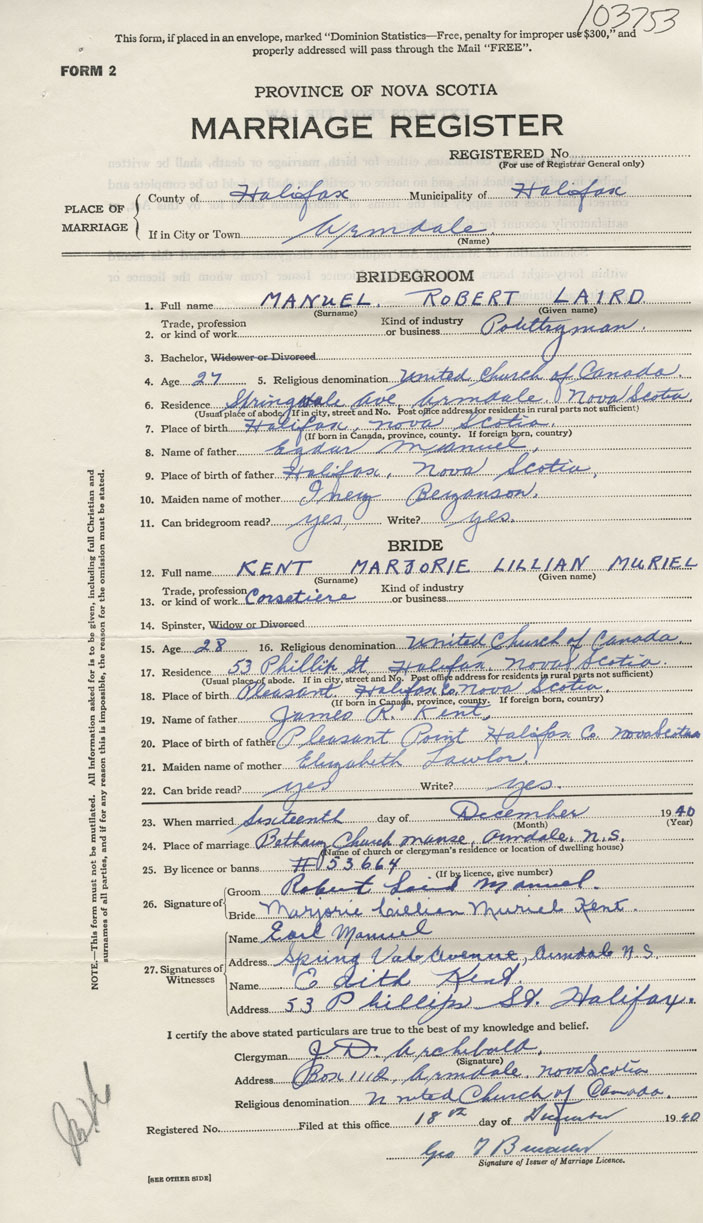 103753
This form, if placed in an envelope, marked "Dominion Statistics—Free, penalty for improper use $300," and
properly addressed will pass through the Mail "FREE".
FORM 2
PROVINCE OF NOVA SCOTIA
MARRIAGE REGISTER
REGISTERED No.
(For use of Registrar General only)
PLACE OF MARRIAGE
County of Halifax Municipality of Halifax
If in City or Town Armdale
(Name)
BRIDEGROOM
1. Full name MANUEL. ROBERT LAIRD
(Surname) (Given name)
2. Trade, profession or kind of work Kind of industry or business Poultryman.
3. Bachelor, Widower or Divorced
4. Age 27 5. Religious denomination United Church of Canada.
6. Residence Springvale Ave Armdale. Nova Scotia
(Usual place of abode. If in city, street and No. Post office address for residents in rural parts not sufficient)
7. Place of birth Halifax, Nova Scotia.
(If born in Canada, province, county. If foreign born, country)
8. Name of father Manuel,
9. Place of birth of father Halifax, Nova Scotia,
10. Maiden name of mother Inez Bezanson.
11. Can bridegroom read? yes, Write? yes.
BRIDE
12. Full name KENT MARJORIE LILLIAN MURIEL
(Surname) (Given name)
13. Trade, profession or kind of work Corsetiere Kind of industry or business
14. Spinster, Widow or Divorced
15. Age 28 16. Religious denomination United Church of Canada.
17. Residence 53 Phillip St. Halifax. Nova Scotia.
(Usual place of abode. If in city, street and No. Post office address for residents in rural parts not sufficient)
18. Place of birth Pleasant Halifax Co. Nova Scotia.
(If born in Canada, province, county. If foreign born, country)
19. Name of father James R. Kent,
20. Place of birth of father Pleasant Point Halifax Co. Nova Scotia
21. Maiden name of mother Elizabeth Lawlor.
22. Can bride read? yes Write? yes.
23. When married sixteenth day of December 1940
(Month) (Year)
24. Place of marriage Bethany Church manse, Armdale, N.S.
(Name of church or clergyman's residence or location of dwelling house)
25. By licence or banns #153664
(If by licence, give number)
26. Signature of
Groom Robert Laird Manuel.
Bride Marjorie Lillian Muriel Kent.
27. Signatures of Witnesses
Name Earl Manuel
Address Spring Vale Avenue, Armdale N.S.
Name Edith Kent
Address 53 Phillips St. Halifax.
I certify the above stated particulars are true to the best of my knowledge and belief.
Clergyman J. D. Archibald,
(Signature)
Address Box 111, Armdale, Nova Scotia
Religious denomination United Church of Canada.
Registered No. Filed at this office 18th day of December 1940
Geo
Signature of Issuer of Marriage Licence.
[SEE OTHER SIDE]
NOTE.—This form must not be mutilated. All information asked for is to be given, including full Christian and
surnames of all parties, and if for any reason this is impossible, the reason for the omission must be stated.